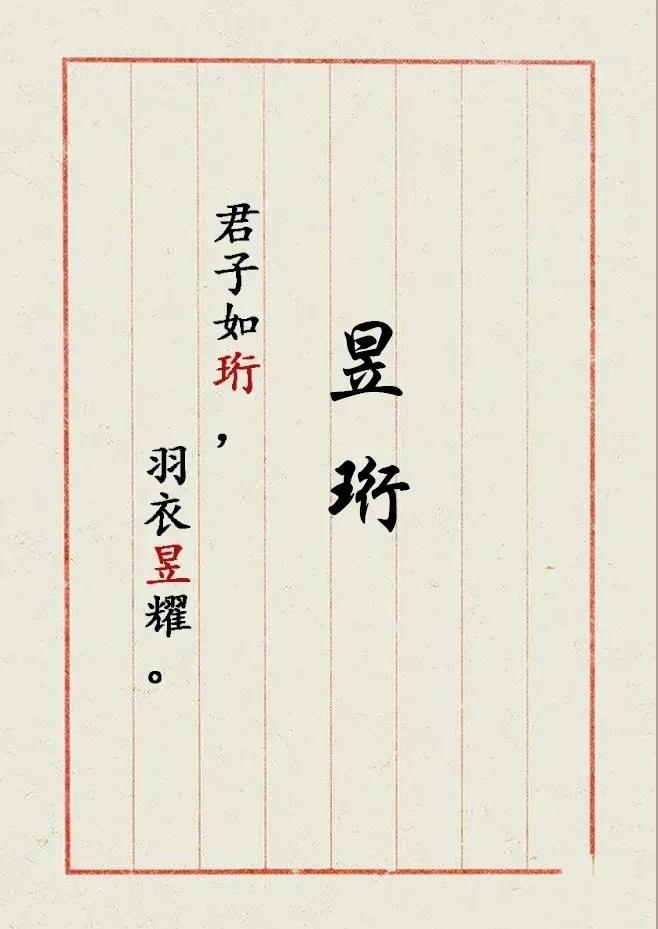 昱珩
君子如珩，
羽衣昱耀。